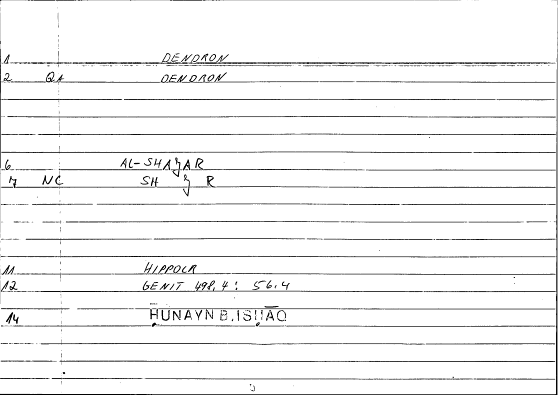 1 DENDRON
2 QA DENDRON
6 AL-SHAʒAR
7 NC SH ʒ R
11 HIPPOCR
12 GENIT 498,4: 56.4
14 ḤUNAYN B. ISḤĀQ